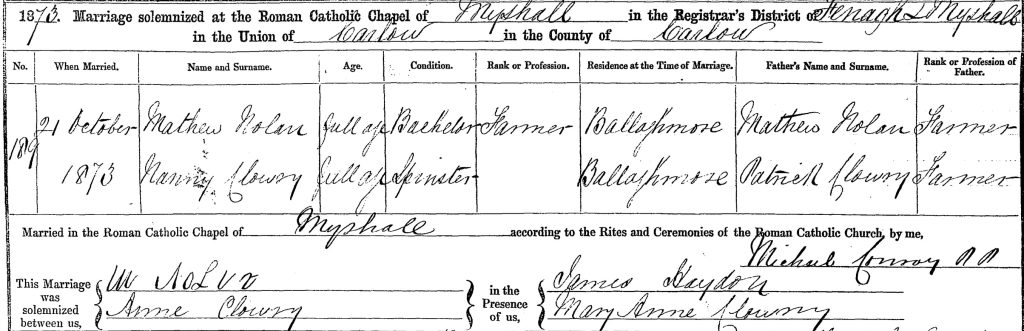 1873. Marriage solemnized at the Roman Catholic Chapel of Myshall in the Registrar's District of Fenagh & Myshall
in the Union of Carlow in the County of Carlow
No. When Married. Name and Surname. Age. Condition. Rank or Profession. Residence at the Time of Marriage. Father's Name and Surname. Rank or Profession of Father.
189 21 October Mathew Nolan full age Bachelor Farmer Ballaghmore Mathew Nolan Farmer
1873 Nanny Clowry full age Spinster Ballaghmore Patrick Clowry Farmer
Married in the Roman Catholic Chapel of Myshall according to the Rites and Ceremonies of the Roman Catholic Church, by me,
Michael Conroy P P
This Marriage was solemnized between us, { M Nolan } in the Presence of us, { James Haydon
Anne Clowry Mary Anne Clowry